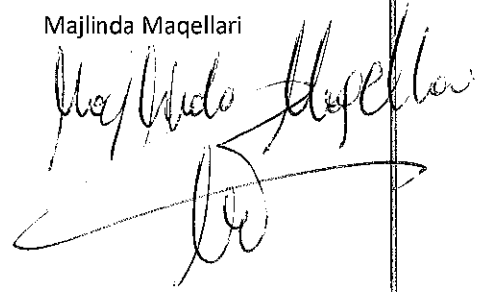 Majlinda Maqellari
Majlinda Maqellari